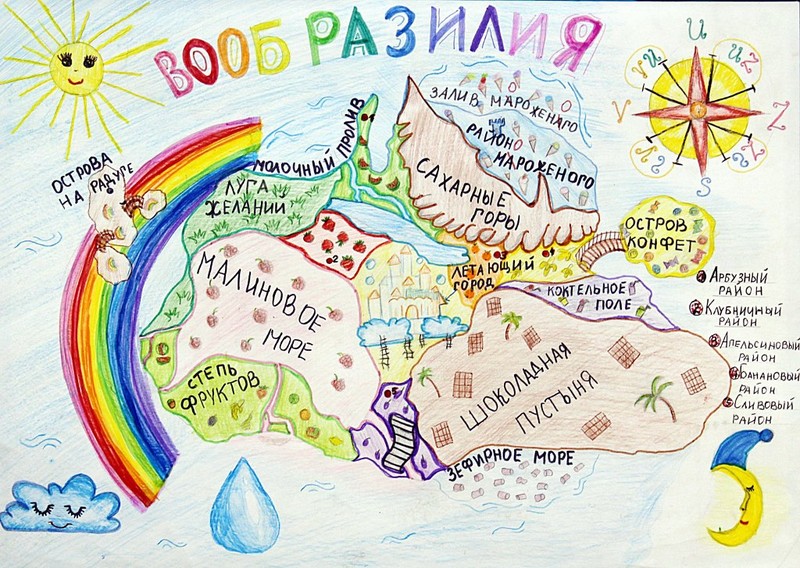 ВООБРАЗИЛИЯ
ЗАЛИВ МАРОЖЕНАГО
РАЙОН
МАРОЖЕНОГО
МОЛОЧНЫЙ ПРОЛИВ
САХАРНЫЕ
ГОРЫ
ОСТРОВА
НА РАДУГЕ
ЛУГА
ЖЕЛАНИЙ
ОСТРОВ
КОНФЕТ
ЛЕТАЮЩИЙ
ГОРОД
МАЛИНОВОЕ
МОРЕ
КОКТЕЛЬНОЕ
ПОЛЕ
ШОКОЛАДНАЯ
ПУСТЫНЯ
СТЕПЬ
ФРУКТОВ
ЗЕФИРНОЕ МОРЕ
АРБУЗНЫЙ
РАЙОН
КЛУБНИЧНЫЙ
РАЙОН
АПЕЛЬСИНОВЫЙ
РАЙОН
БАНАНОВЫЙ
РАЙОН
СЛИВОВЫЙ
РАЙОН
2
U
Z
S
V